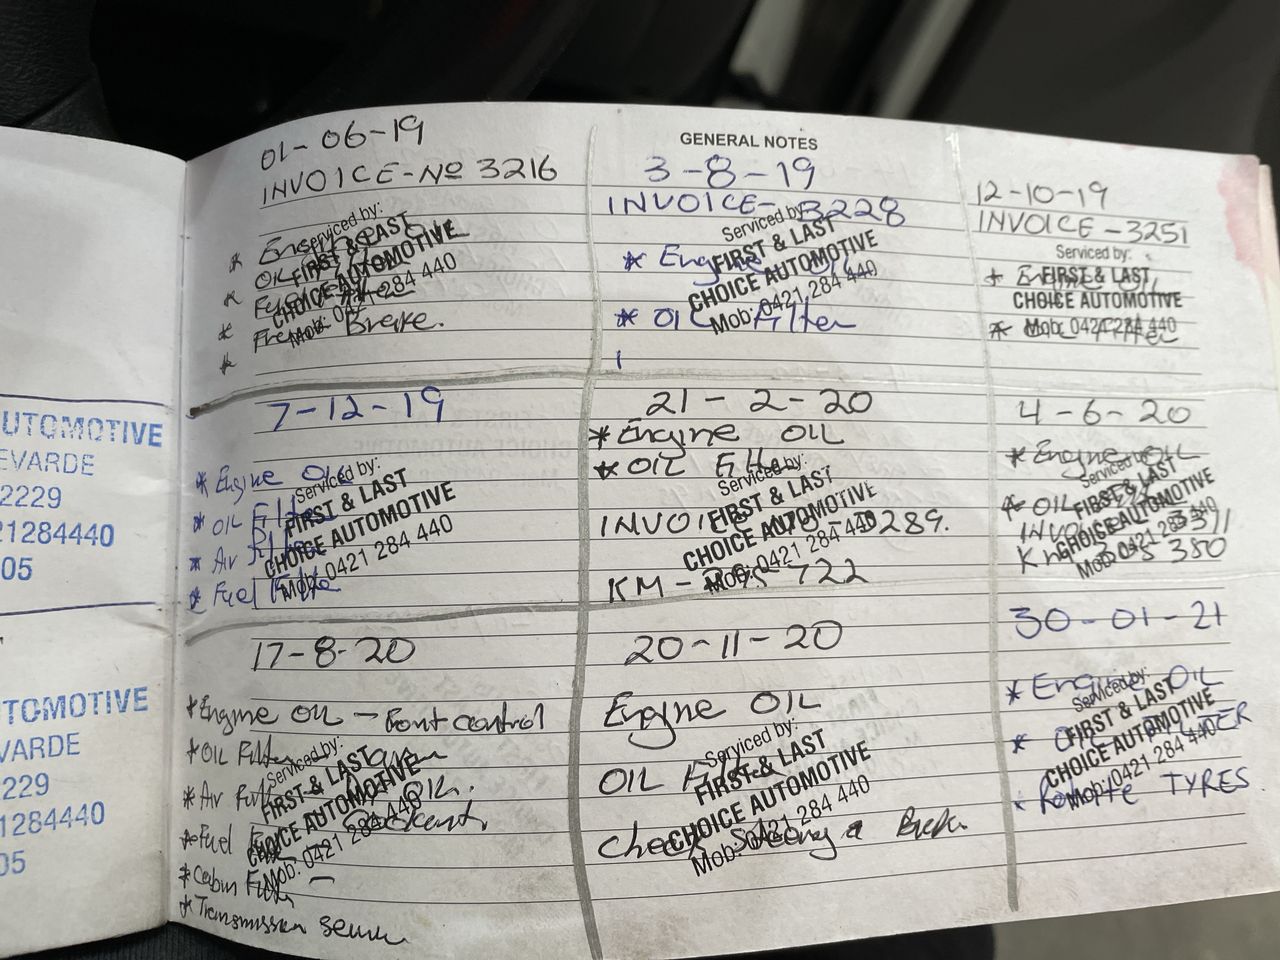 UTOMOTIVE
EVARDE
2229
21284440
05
TCMOTIVE
VARDE
229
1284440
05
GENERAL NOTES
01-06-19
INVOICE-No 3216
Serviced by:
FIRST & LAST
CHOICE AUTOMOTIVE
Mob: 0421 284 440
*
*
* Brake.
*
3-8-19
INVOICE- 3228
Serviced by:
FIRST & LAST
CHOICE AUTOMOTIVE
Mob: 0421 284 440
* Engine
* OIL Filter
12-10-19
INVOICE-3251
Serviced by:
FIRST & LAST
CHOICE AUTOMOTIVE
Mob: 0421 284 440
7-12-19
* Engine OIL
* OIL Filter
* Air Filter
* Fuel Filter
Serviced by:
FIRST & LAST
CHOICE AUTOMOTIVE
Mob: 0421 284 440
21-2-20
* Engine OIL
* OIL Filter
INVOICE 3289.
KM - 722
Serviced by:
FIRST & LAST
CHOICE AUTOMOTIVE
Mob: 0421 284 440
4-6-20
* Engine OIL
* OIL
380
Serviced by:
FIRST & LAST
CHOICE AUTOMOTIVE
Mob: 0421 284 440
17-8-20
* Engine OIL - Front control
* OIL Filter
* Air
* Fuel
* Cabin Filter
* Transmission
OIL.
Serviced by:
FIRST & LAST
CHOICE AUTOMOTIVE
Mob: 0421 284 440
20-11-20
Engine OIL
OIL Filter
Check Steering & Brake
Serviced by:
FIRST & LAST
CHOICE AUTOMOTIVE
Mob: 0421 284 440
30-01-21
* Engine OIL
* OIL FILTER
* Rotate TYRES.
Serviced by:
FIRST & LAST
CHOICE AUTOMOTIVE
Mob: 0421 284 440